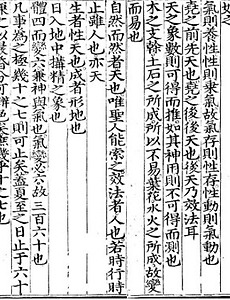 如之
氣則養性性則乘氣故氣存則性存性動則氣動也
堯之前先天也堯之後後天也後天乃效法耳
天之象數則可得而推如其神用則不可得而測也
木之支幹土石之所成所以不易葉花水火之所成故變
而易也
自然而然者天也唯聖人能索之效法者人也若時行時
止雖人也亦天
生者性天也成者形地也
日入地中搆精之象也
體四而變六兼神與氣也氣變必六故三百六十也
凡事為之極幾十之七則可止矣蓋夏至之日止于六十
兼之以晨昏分可辨色矣庶幾乎十之七也